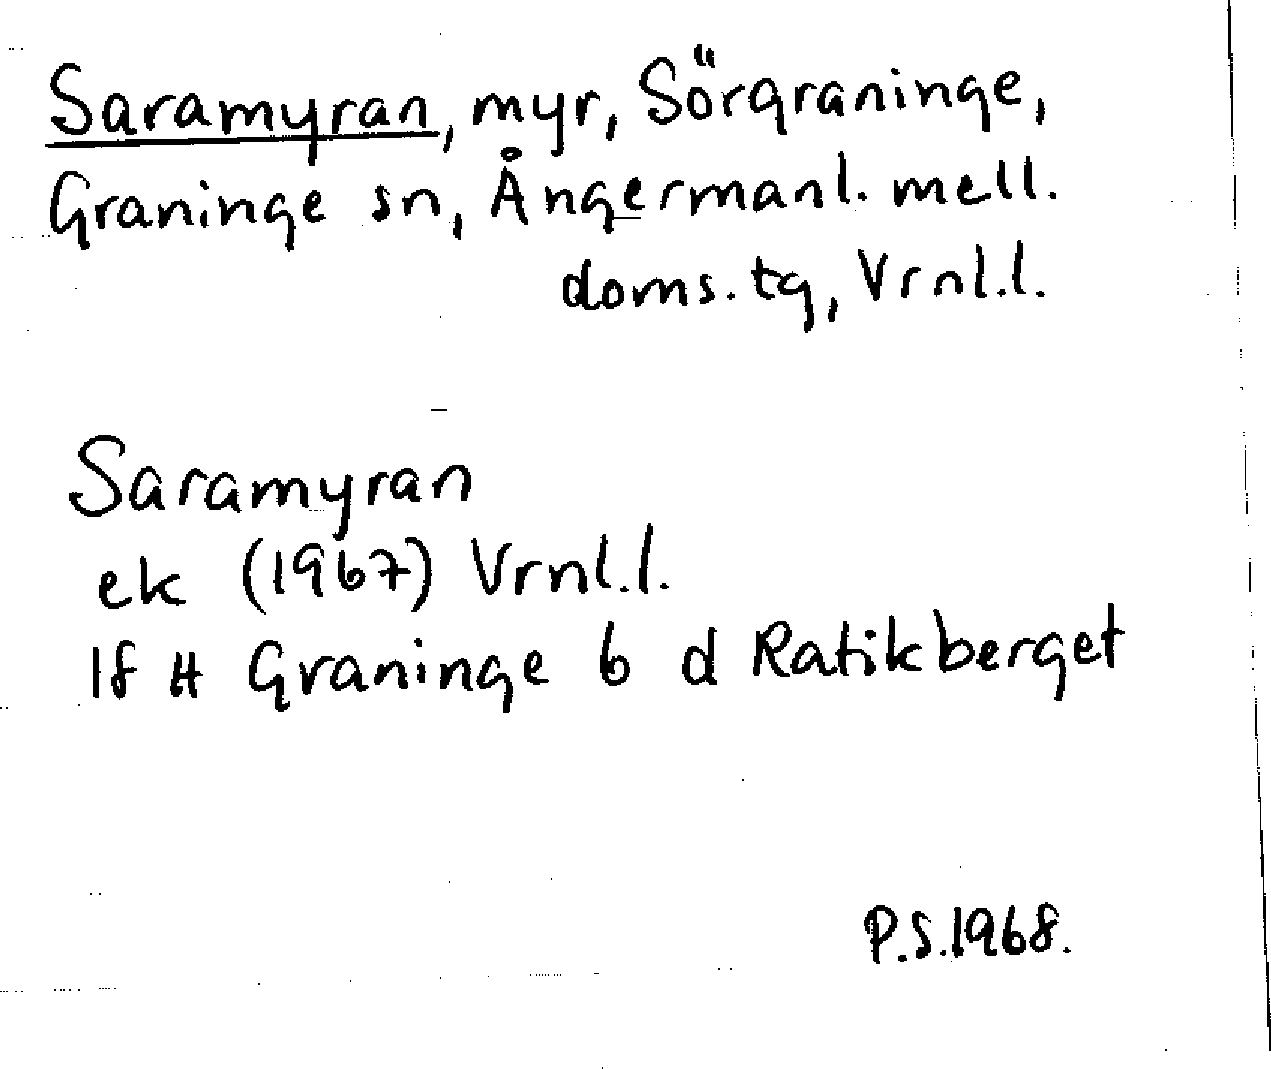 Saramyran, myr, Sörgraninge,
Graninge sn, Ångermanl. mell.
doms.tg, Vrnl.l.
Saramyran
ek (1967) Vrnl.l.
lf H Graninge b d Ratikberget
P.S.1968.